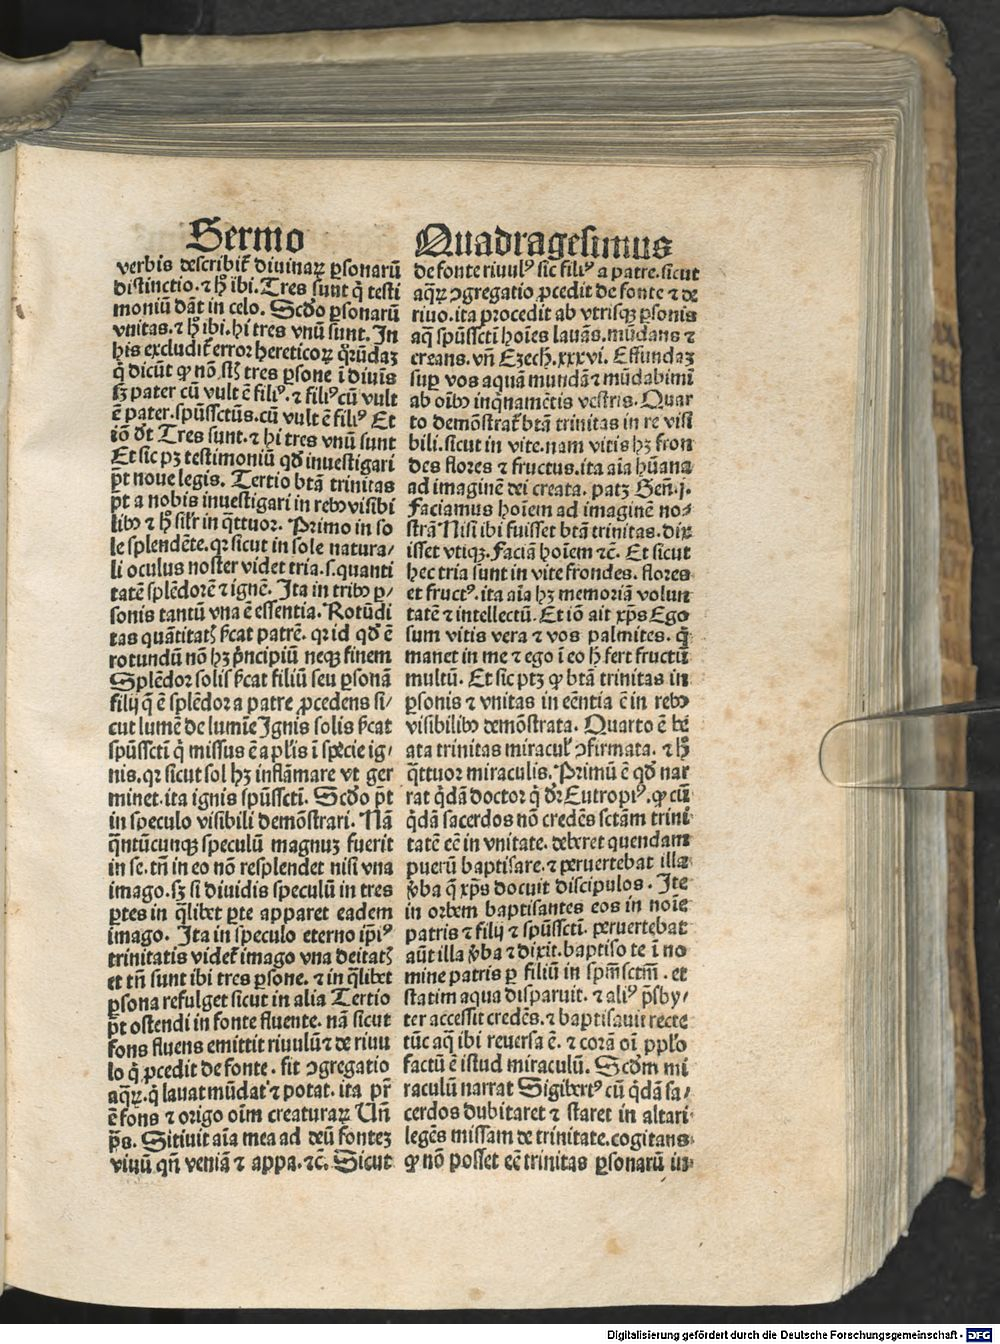 Sermo
verbis describit᷑ divinaꝝ ꝑsonarũ
distinctio.⁊ hͦ ibi.Tres sunt q̇ testi
moniũ dãt in celo. Scḋo ꝑsonarũ
vnitas.⁊ hͦ ibi.hi tres vnũ sunt. In
his excludit᷑ error hereticoꝝ qͦrũdaꝫ
q̇ dicũt ꝙ nõ sꝉ tres ꝑsone ĩ diuĩs
sꝫ pater cũ vult ẽ filiꝰ.⁊ filiꝰ cũ vult
ẽ pater.spũssctũs.cũ vult ẽ filiꝰ Et
iõ dr̃t Tres sunt.⁊ hi tres vnũ sunt
Et sic pꝫ testimoniũ qḋ inuestigari
p̃t noue legis. Tertio btã trinitas
p̃t a nobis inuestigari in rebꝰ visibi
libꝰ ⁊ hͦ silr̃ in q̃ttuor. Primo in so
le splendẽte.qꝛ sicut in sole natura⸗
li oculus noster videt tria.s.quanti
tatẽ splẽdorẽ ⁊ ignẽ. Ita in tribꝰ ꝑ⸗
sonis tantũ vna ẽ essentia. Rotũdi
tas quãtitatꝭ ſ̃cat patrẽ. qꝛ id qḋ ẽ
rotundũ nõ hꝫ p̃ncipiũ neqꝫ finem
Splẽdor solis ſ̃cat filiũ seu ꝑsonã
filij q̃ ẽ splẽdoꝛ a patre ꝓcedens si⸗
cut lumẽ de lumĩe Ignis solis ſ̃cat
spũssctĩ q̇ missus ẽ a pr̃is ĩ specie ig⸗
nis.qꝛ sicut sol hꝫ inflãmare vt ger
minet.ita ignis spũssctĩ. Scḋo p̃t
in speculo visibili demõstrari. Nã
q̃ntũcunqꝫ speculũ magnuꝫ fuerit
in se.tñ in eo nõ resplendet nisi vna
imago.sꝫ si diuidis speculũ in tres
ꝑtes in q̃libet ꝑte apparet eadem
imago. Ita in speculo eterno ip̃iꝰ
trinitatis videt᷑ imago vna deitatꝭ
et tñ sunt ibi tres ꝑsone. ⁊ in q̃libet
ꝑsona refulget sicut in alia Tertio
p̃t ostendi in fonte fluente. nã sicut
fons fluens emittit riuulũ ⁊ de riuu
lo q̇ ꝓcedit de fonte. fit ↄgregatio
aqꝝ.q̇ lauat mũdat ⁊ potat. ita pr̃
ẽ fons ⁊ origo oĩm creaturaꝝ Uñ
p̃s. Sitiuit aĩa mea ad deũ fonteꝫ
viuũ qñ veniã ⁊ appa.⁊c̃. Sicut
Quadragesimus
de fonte riuulꝰ sic filiꝰ a patre.sicut
aqꝝ ↄgregatio ꝓcedit de fonte ⁊ de
riuo.ita procedit ab vtrisqꝫ ꝑsonis
aq̃ spũssctĩ hoĩes lauãs.mũdans ⁊
creans. vñ Ezech̃.xxxvi. Effundaꝫ
suꝑ vos aquã mundã ⁊ mũdabimĩ
ab oĩbꝰ inq̇namẽtis vestris. Quar
to demõstrat᷑ btã trinitas in re visi
bili.sicut in vite.nam vitis hꝫ fron
des flores ⁊ fructus.ita aĩa hũana
ad imaginẽ dei creata. patꝫ Geñ.j.
Faciamus hoĩem ad imaginẽ no⸗
strã Nisi ibi fuisset btã trinitas.dix
isset vtiqꝫ.Faciã hoĩem ⁊c̃. Et sicut
hec tria sunt in vite frondes. flores
et fructꝰ.ita aĩa hꝫ memoriã volun
tatẽ ⁊ intellectũ. Et iõ ait xp̃s Ego
sum vitis vera ⁊ vos palmites. q̇
manet in me ⁊ ego ĩ eo h̃ fert fructũ
multũ. Et sic ptꝫ ꝙ btã trinitas in
ꝑsonis ⁊ vnitas in eẽntia ẽ in rebꝰ
visibilibꝰ demõstrata. Quarto ẽ be
ata trinitas miracul᷑ ↄfirmata. ⁊ hͦ
q̃ttuor miraculis. Primũ ẽ qḋ nar
rat q̇dã doctor q̇ dr̃ Eutropiꝰ.ꝙ cũ
q̇dã sacerdos nõ credẽs sctãm trini
tatẽ eẽ in vnitate. deberet quendam
puerũ baptisare. ⁊ peruertebat illa
ꝟba q̃ xp̃s docuit discipulos. Ite
in orbem baptisantes eos in noĩe
patris ⁊ filij ⁊ spũssctĩ. peruertebat
aũt illa ꝟba ⁊ dixit.baptiso te ĩ no
mine patris ꝑ filiũ in spm̃sctm̃. et
statim aqua disparuit. ⁊ aliꝰ p̃sby⸗
ter accessit credẽs.⁊ baptisauit recte
tũc aq̃ ibi reuersa ẽ. ⁊ corã oĩ pplo
factũ ẽ istud miraculũ. Scḋm mi
raculũ narrat Sigibertꝰ cũ q̇dã sa⸗
cerdos dubitaret ⁊ staret in altari
legẽs missam de trinitate.cogitans
ꝙ nõ posset eẽ trinitas ꝑsonarũ in
Digitalisierung gefördert durch die Deutsche Forschungsgemeinschaft - DFG